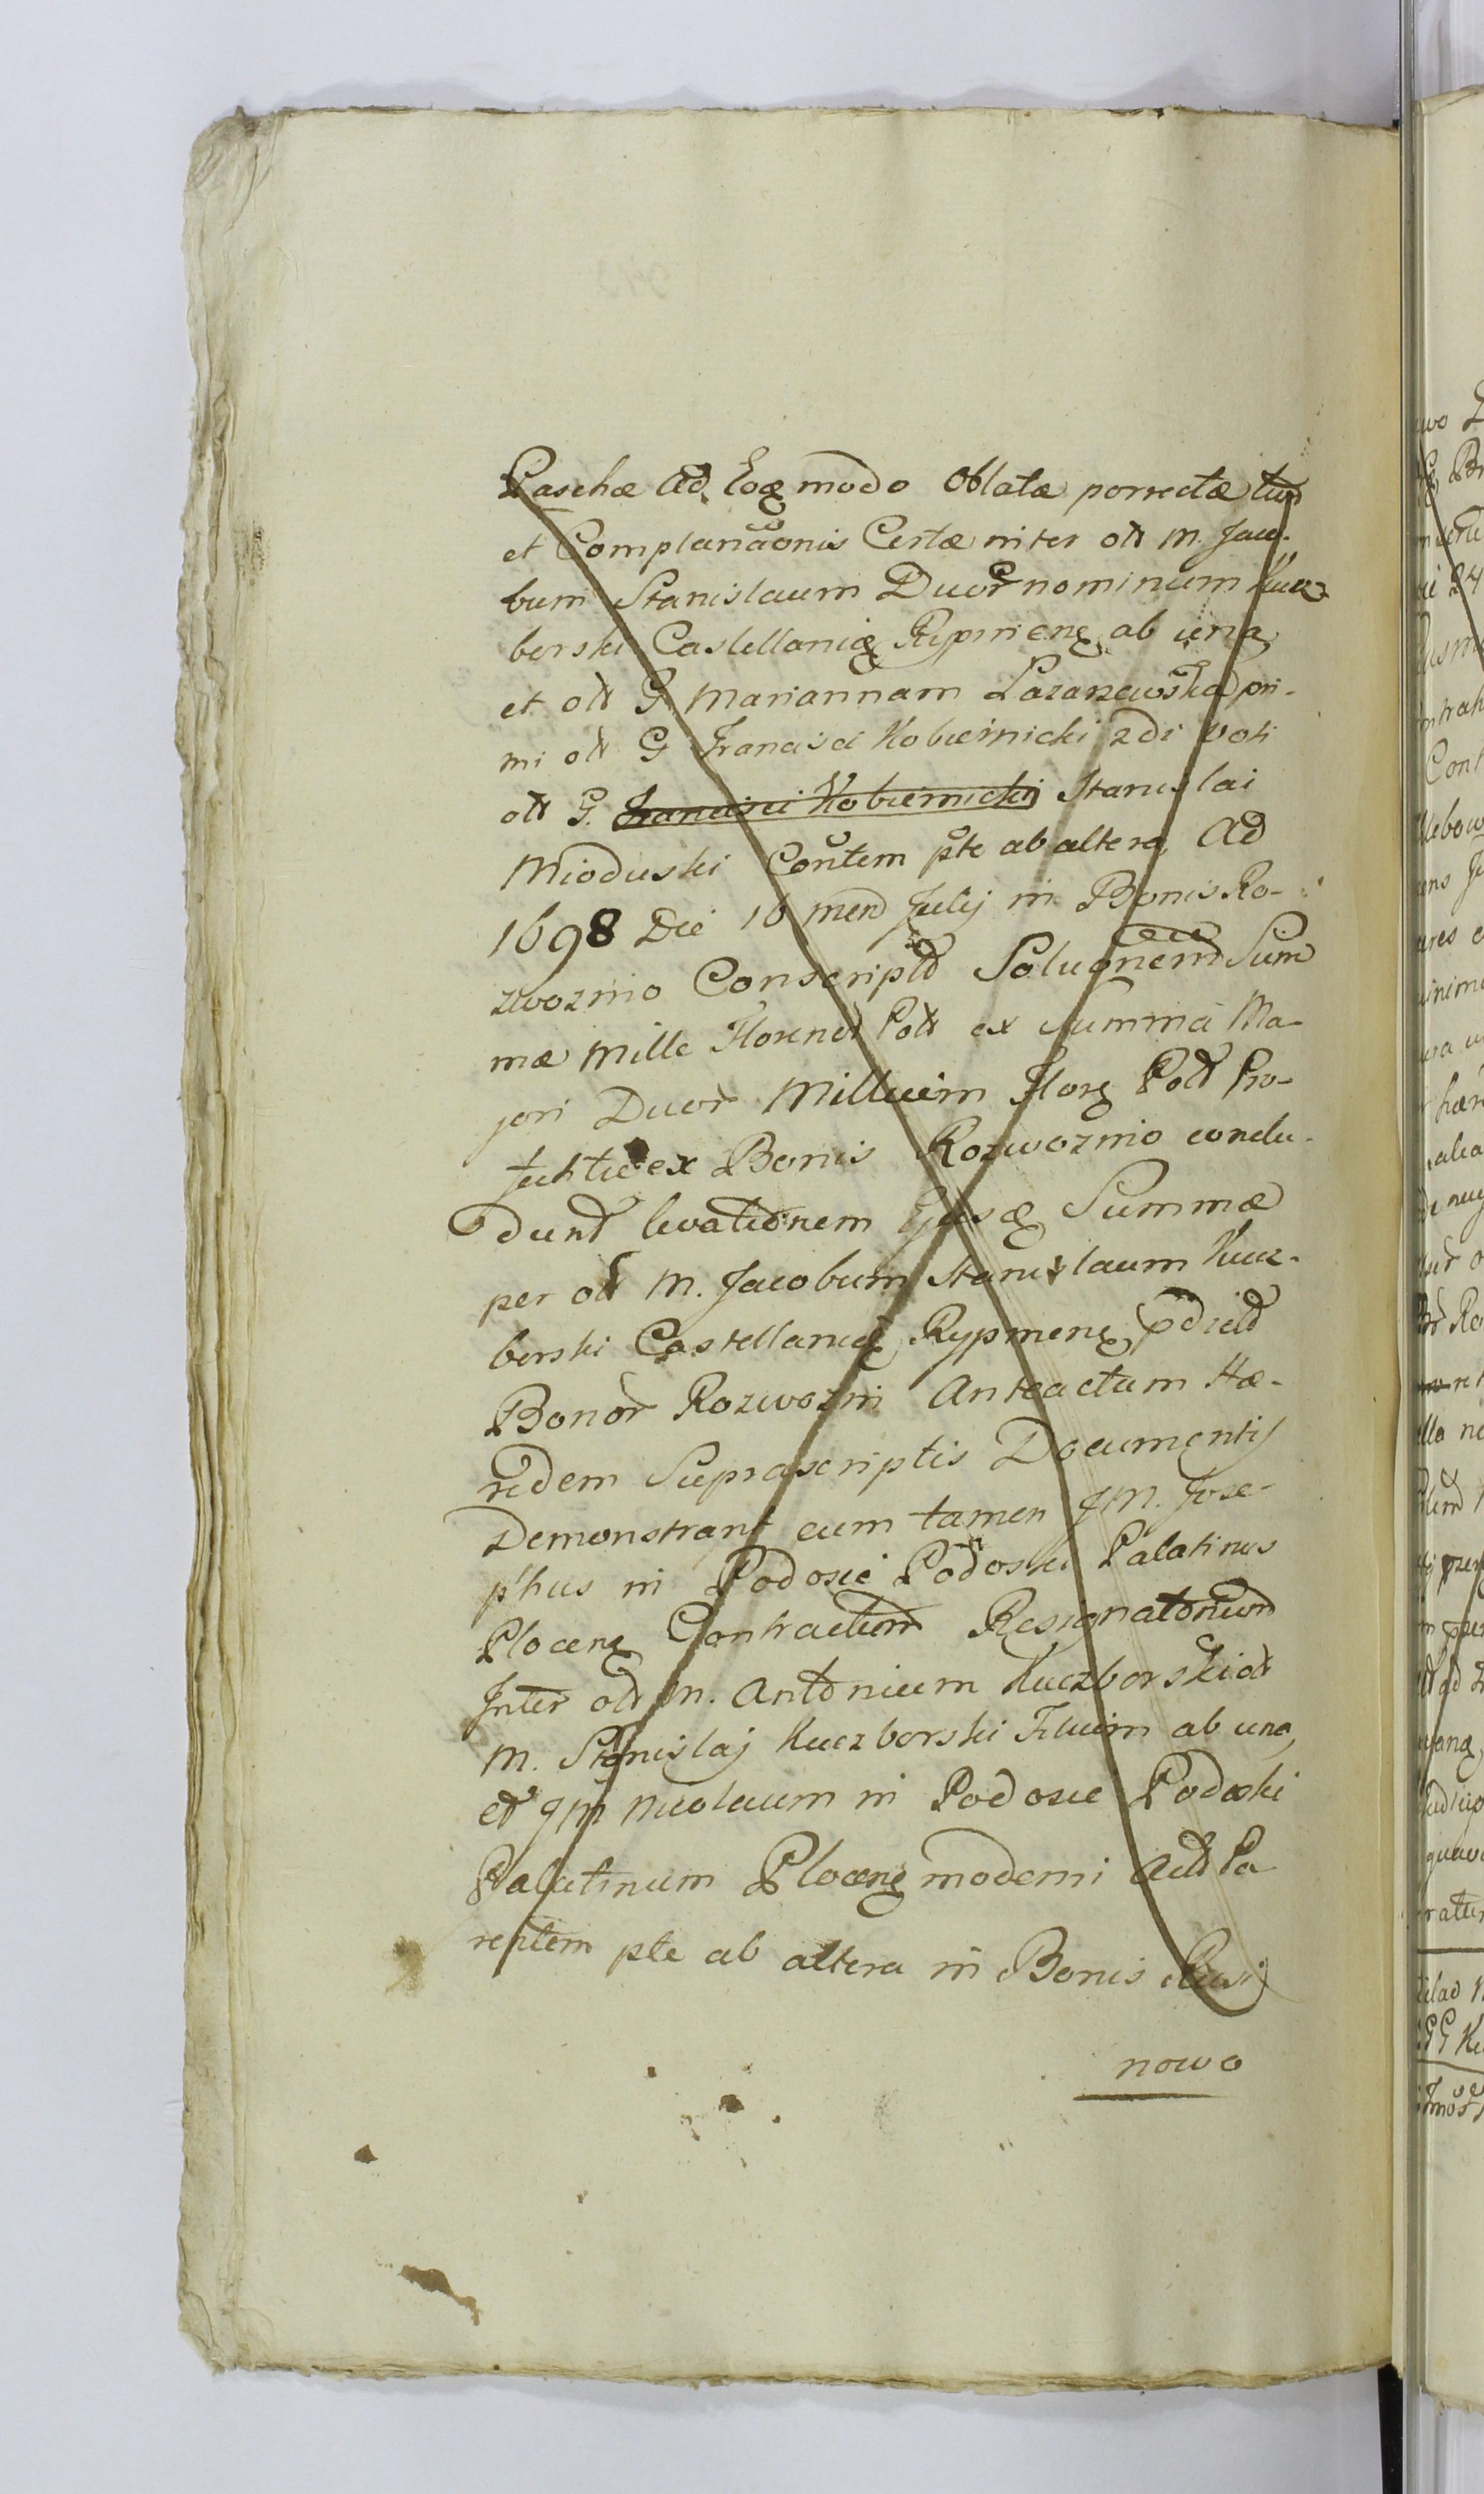 Paschæ Ad Eoq modo Oblatæ porrectæ tum
et Complanãonis Certæ inter olt M. Jaco-
bum Stanislaum Duor nominum Kucz-
borski Castellaniq Rypinenq ab una
et olt G. Mariannam Lazarzewska pri-
mi olt G Francisci Kobiernicki 2di voti
olt G. Francisci Kobiernicki Stanislai
Mioduski Contem pte ab altera Ad
1698 Die 16 men Julij in Bonis Ro-
zwozino Conscriptã Solugnem Sum
mæ Mille Florenor Polt ex Summa Ma-
jori Duor Millium Florq Polt Pro-
ex Bonis Rozwozino conclu-
dunt levationem Ejusq Summæ
per olt M. Jacobum Stanislaum Kucz-
borski Castellaniq Rypinenq
Bonor Rozwozin Anteactum Hæ-
redem Suprascriptis Documentis
Demonstrant cum tamen JM. Jose-
phus in Podosie Podoski Palatinus
Plocenq Contractum Resignatorium
Inter olt M. Antonium Kuczborski olt
M. Stanislaj Kuczborski Filium ab una,
et JM Nicolaum in Podosie Podoski
Palatinum Plocenq moderni Actt Pa
rentem pte ab altera in Bonis Rusi
nowo